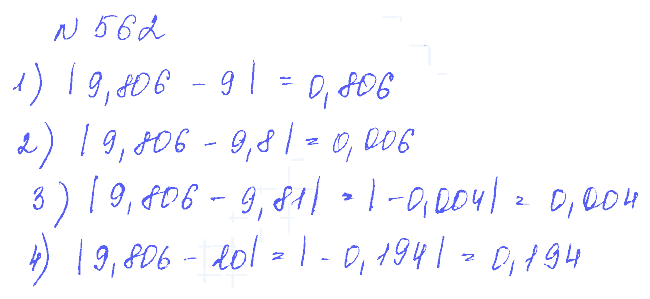 N 562
1) |9,806 - 9| = 0,806
2) |9,806 - 9,8| = 0,006
3) |9,806 - 9,81| = |-0,004| = 0,004
4) |9,806 - 10| = |-0,194| = 0,194